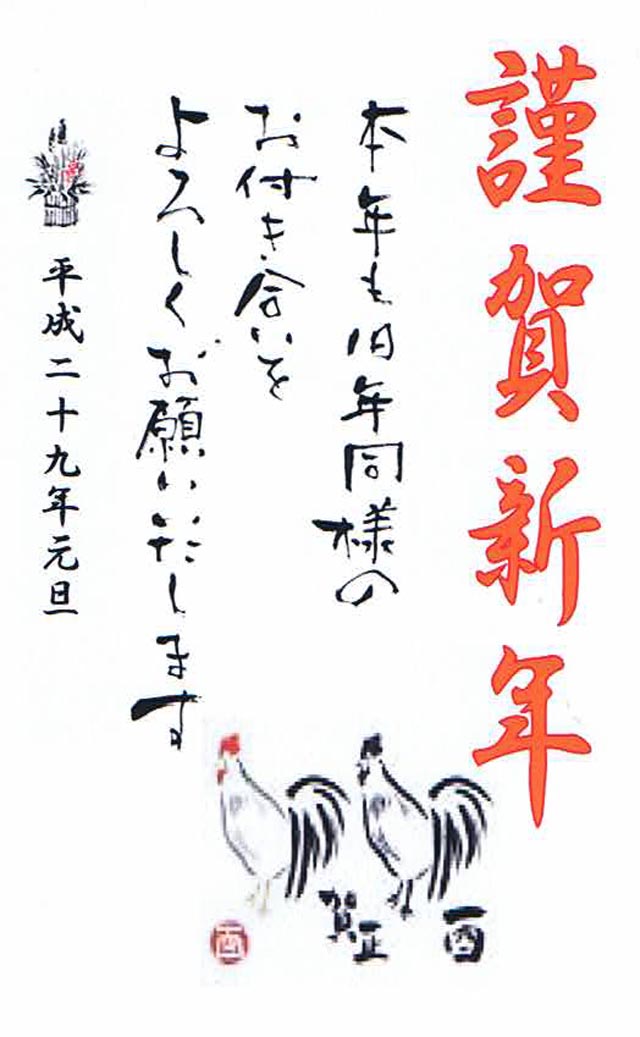 謹賀新年
本年も旧年同様の
お付き合いを
よろしくお願いいたします
平成二十九年元旦
酉
賀正
酉